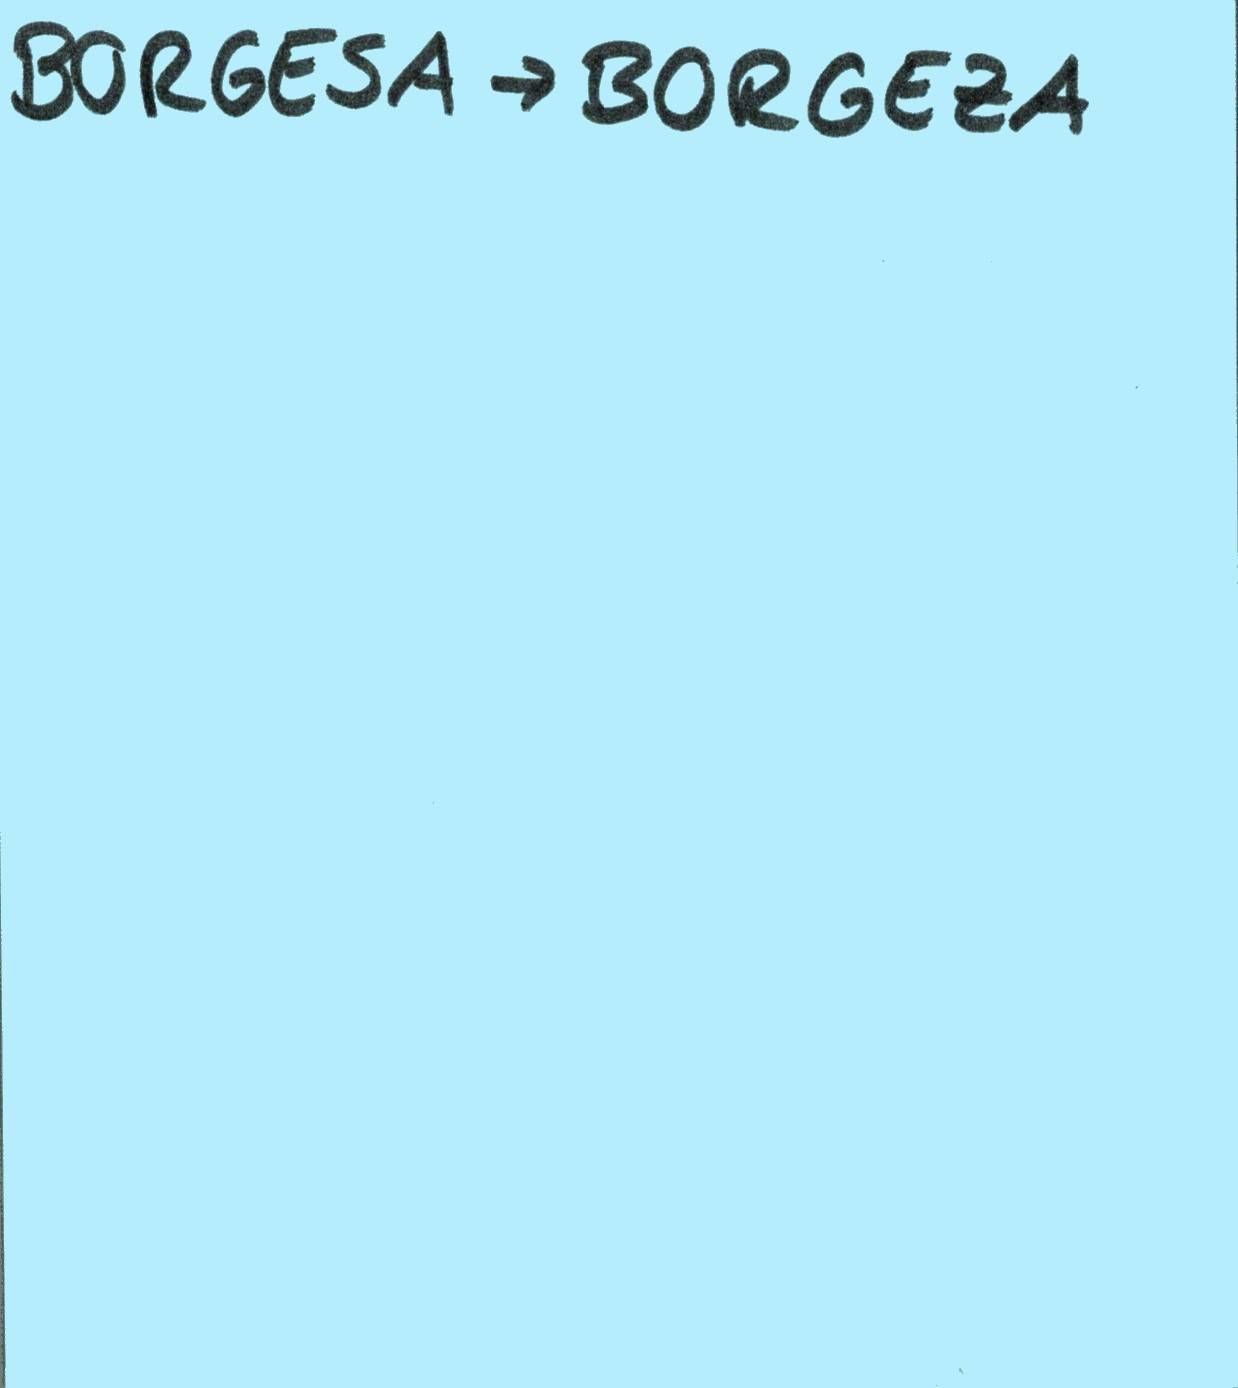 BORGESA → BORGEZA